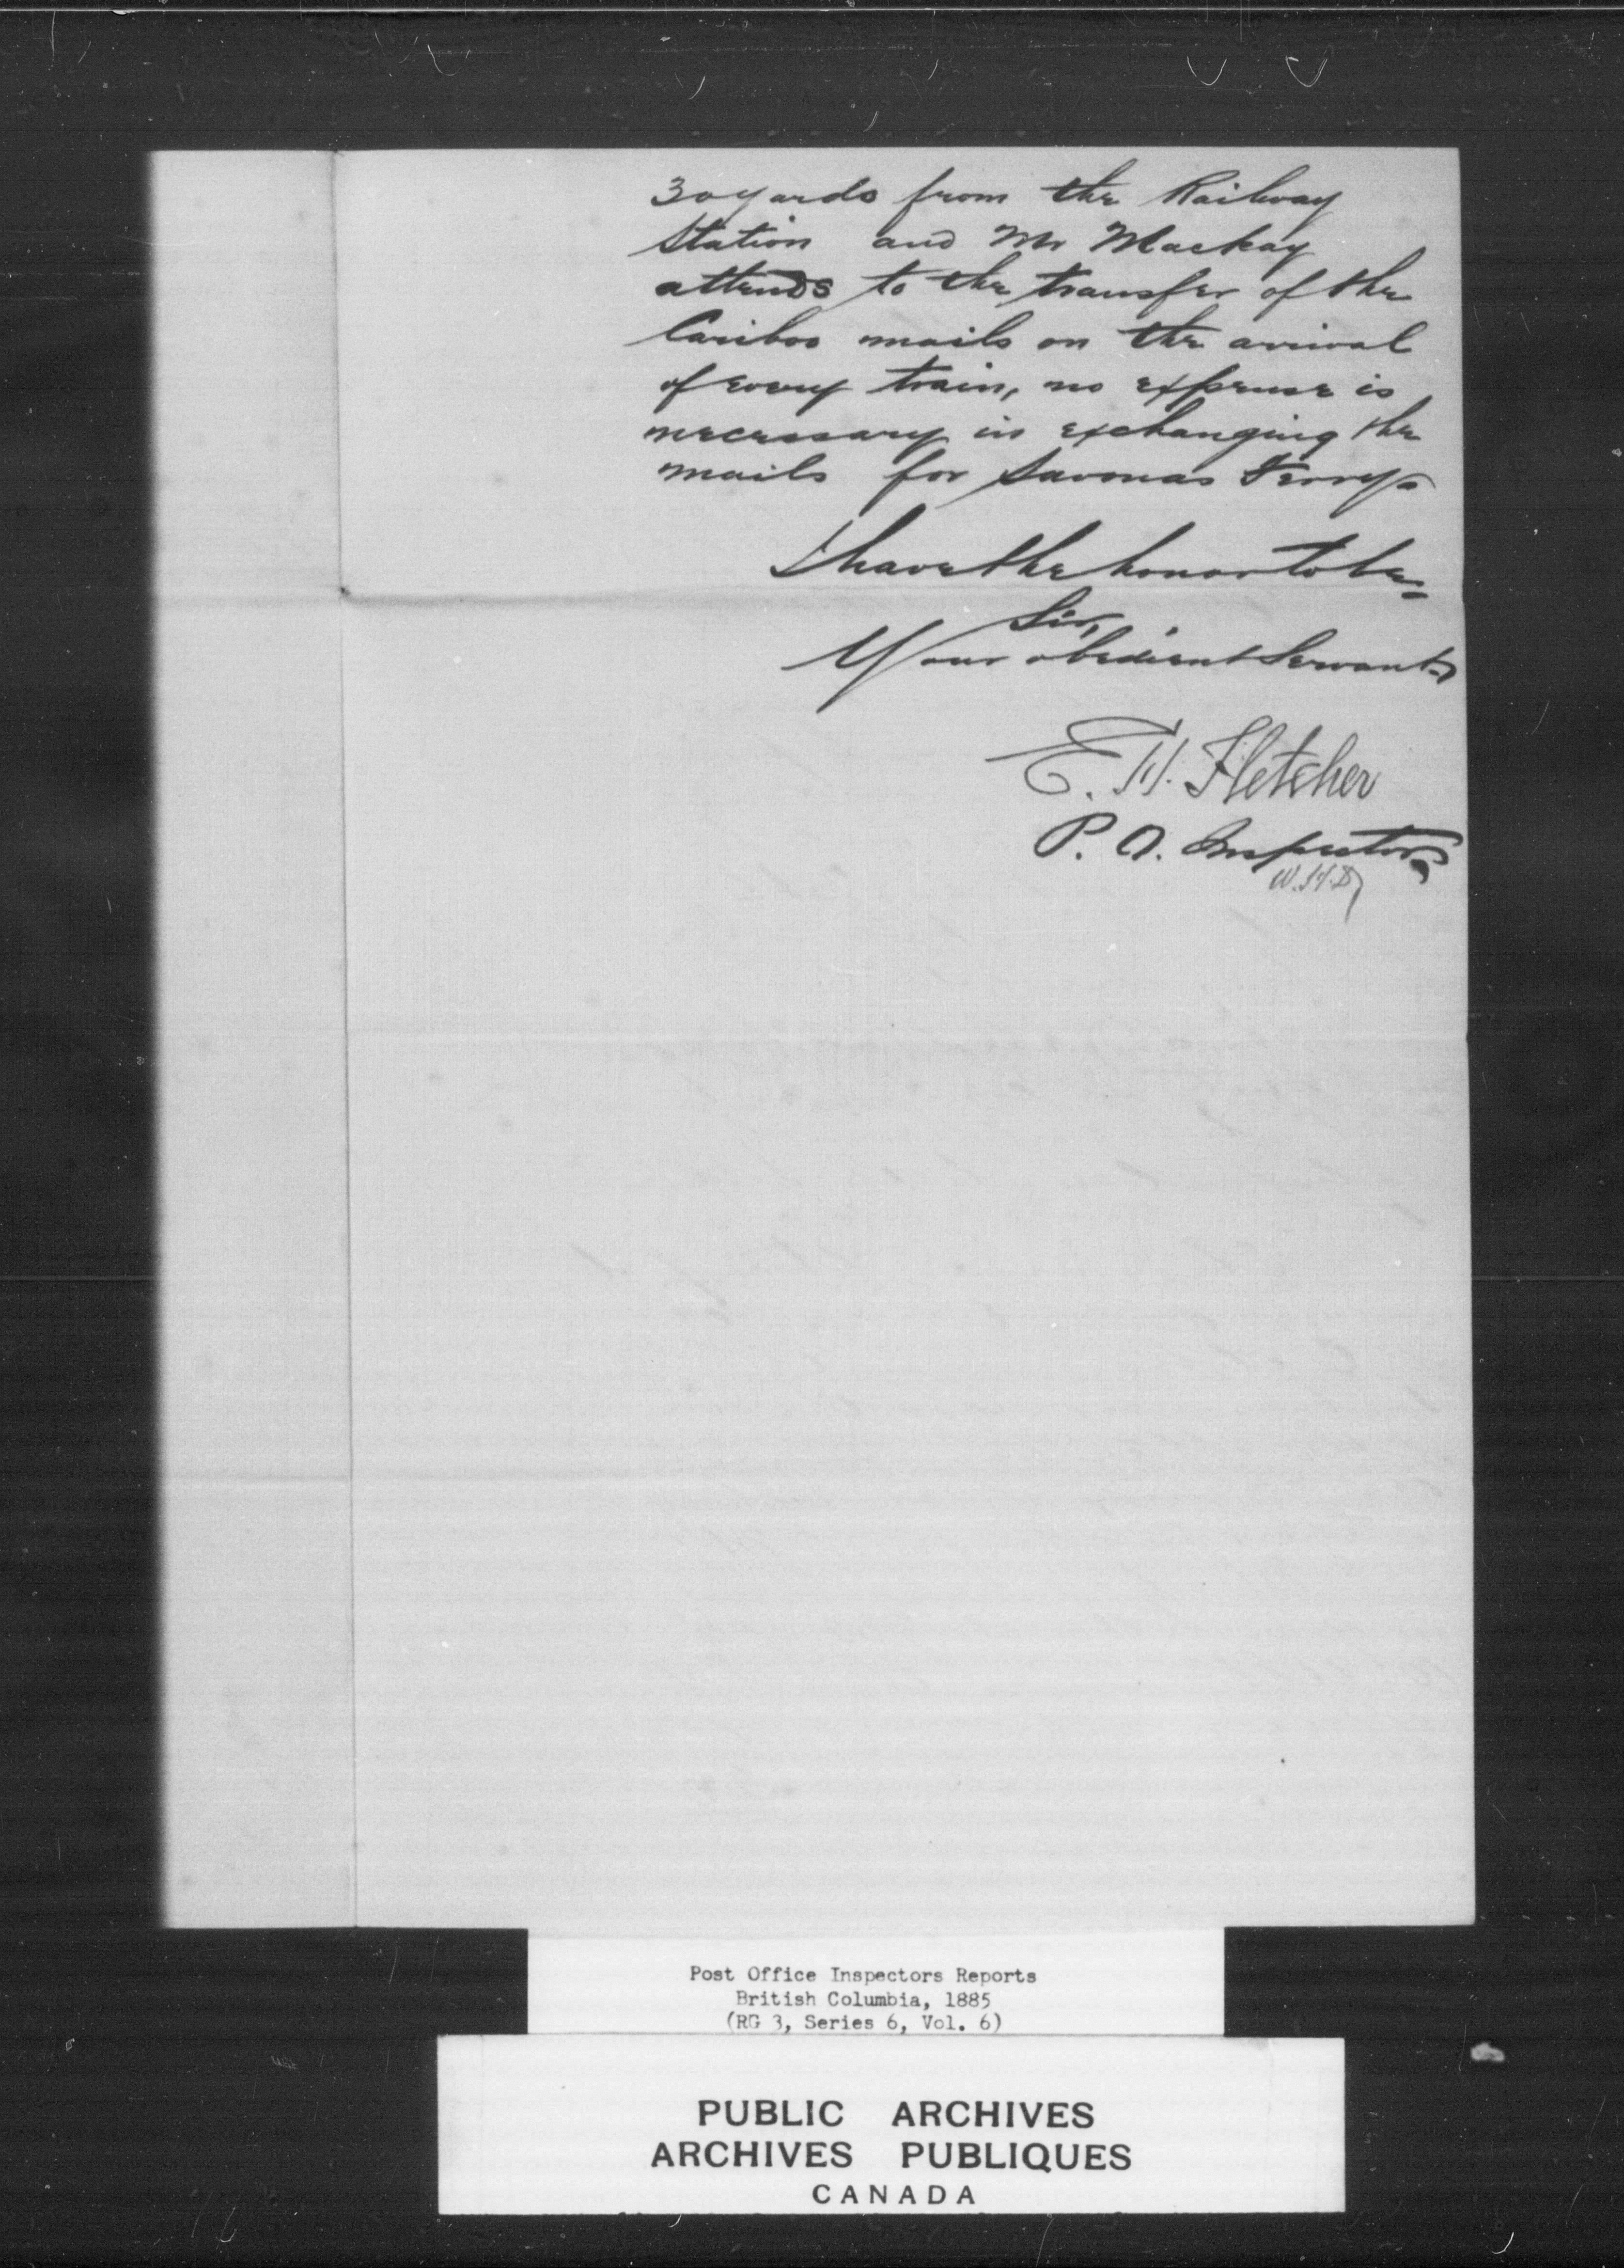 30 yards from the Railway
Station and Mr Mackay
attends to the transfer of the
Cariboo mails on the arrival
of every train, no expense is
necessary in exchanging the
mails for Savonas Ferry.
I have the honor to be,
Sir,
Your obedient Servant,
E. H. Fletcher
P. O. Inspector,
W.H.D
Post Office Inspectors Reports
British Columbia, 1885
(RG 3, Series 6, Vol. 6)
PUBLIC ARCHIVES
ARCHIVES PUBLIQUES
CANADA